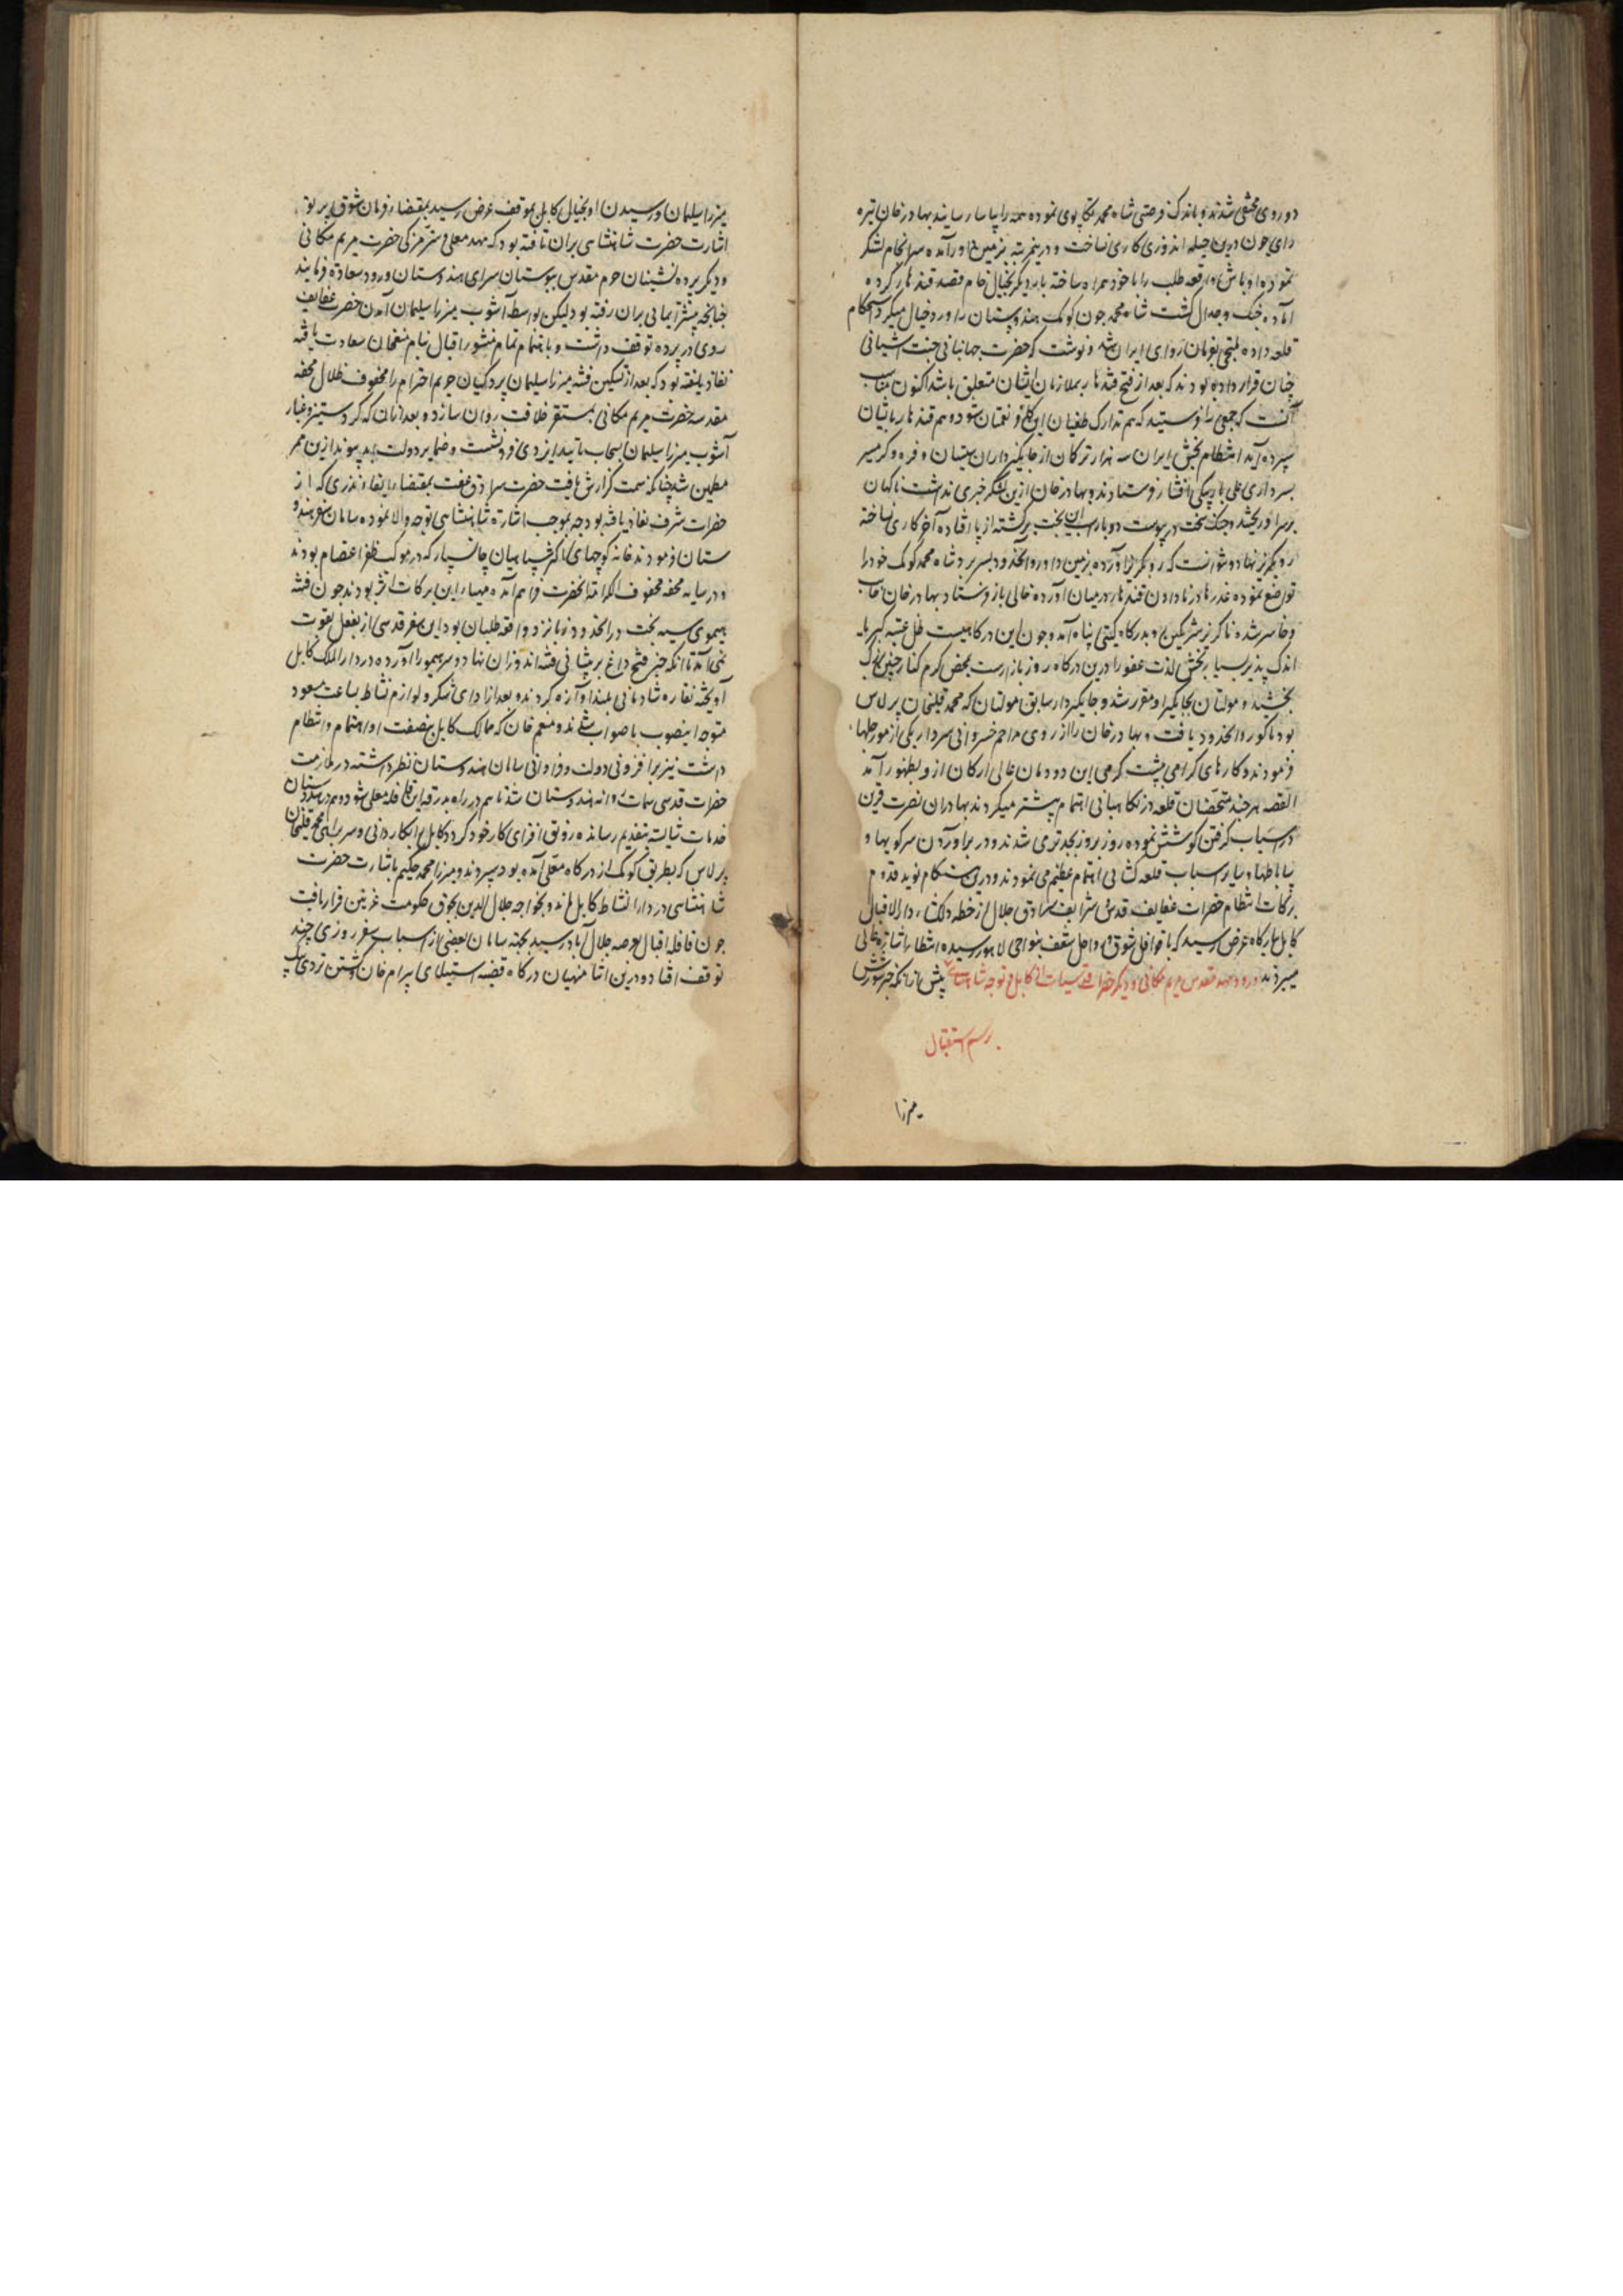 دو روی مخفی شدند و باندک فرصتی شاه محمد تکاپوی نموده همه را بیاسا رسانید بهادر خان تیره
رای چون درین حیله اندوزی کاری نساخت و درینمرتبه بزمین داور آمده سرانجام لشکر
نموده اوباش واقعه طلب را با خود همراه ساخته بار دیگر بخیال خام قصد قندهار کرده
آماده جنک و جدال کشت شاه محمد چون کومک هندوستان را دور خیال میکرد استحکام
قلعه داده ملتجی بفرمان روای ایران شد و نوشت که حضرت جهانبانی جنت آشیانی
چنان قرار داده بودند که بعد از فتح قندهار بملازمان ایشان متعلق باشد اکنون مناسب
آنست که جمعی را فرستید که هم تدارک طغیان این کافر نعمتان شود و هم قندهار باشان
سپرده آید انتظام بخش ایران سه هزار ترکان از جایکیرداران سیستان و فره و کرمسیر
بسرداری علی یار بیکی افشار فرستادند و بهادر خان ازین لشکر خبری نداشت ناکهان
بر سر او ریختند و جنک سخت در پیوست دو بار اسپ این بخت برکشته از پا افتاده آخر کاری نساخته
رو بکریز نهاد و نتوانست که رو بکریز آورده بزمین داور و آنحدود بسر برد شاه محمد کومک خود را
تواضع نموده عذرها در نادادن قندهار در میان آورده خالی باز فرستاد بهادر خان خایب
و خاسر شده ناکزیر شرمکین رو بدرکاه کیتی پناه آمد و چون این درکاهیست ظل عتبه کبریا
اندک پذیر بسیار بخش لذت عفو را درین درکاه روز بازارست بمحض کرم کناه چنین بزرک
بخشیدند و مولتان بجایکیر او مقرر شد و جایکیردار سابق مولتان که محمد قلیخان برلاس
بود ناکور و آنحدود یافت و بهادر خان را از روی مراحم خسروانی سردار یکی از مورچلها
فرمودند و کارهای کرامی بپشت کرمی این دودمان عالی ارکان ازو بظهور آمد
القصه هر چند متحصنان قلعه در نکاهبانی اهتمام بیشتر میکردند بهادران نصرت قرین
در اسباب کرفتن کوشش نموده روز بروز بجدتر می شدند و در برآوردن سرکوبها و
ساباطها و سایر اسباب قلعه کشایی اهتمام عظیم می نمودند و درین هنکام نوید قدوم
برکات انتظام حضرات عفایف قدس شرایف سرادق جلال از خطه دلکشاء دار الاقبال
کابل ببارکاه عرض رسید که با قوافل شوق و رواحل شغف بنواحی لاهور رسیده انتظار اشارت عالی
میبرند ورود مهد مقدس مریم مکانی و دیکر حضرات قدسیات از کابل و توجه شاهنشاهی پیش از آنکه خبر شورش
برسم استقبال
میرزا
میرزا سلیمان و رسیدن او بخیال کابل بموقف عرض رسید بمقتضاء فرمان شوق پرتو
اشارت حضرت شاهنشاهی بران تافته بود که مهد معلی و ستر مزکی حضرت مریم مکانی
و دیکر پرده نشینان حرم مقدس ببوستان سرای هندوستان ورود سعادة فرمایند
چنانچه پیشتر ایمائی بران رفته بود لیکن بواسطه آشوب میرزا سلیمان آمدن حضرت عفایف
روی در پرده توقف داشت و باهتمام تمام منشور اقبال بنام منعم خان سعادت یافته
نفاذ یافته بود که بعد از تسکین فتنه میرزا سلیمان پردکیان حریم احترام را محفوف ظلال محفه
مقدسه حضرت مریم مکانی بمستقر خلافت روان سازد و بعد از آن که کرد ستیز و غبار
آشوب میرزا سلیمان بسحاب تایید ایزدی فرو نشست و ضمایر دولت ابد پیوند ازین ممر
مطمئن شد چنانکه سمت کزارش یافت حضرت سرادق عفت بمقتضاء ایفاء نذری که از
حضرات شرف نفاذ یافته بود چه بموجب اشارة شاهنشاهی توجه والا نموده سامان سفر هندو
ستان فرمودند خانه کوچهای اکثر سپاهیان جانسپار که در موکب ظفر اعتصام بودند
و در سایه محفه محفوف الکرامة آنحضرت فراهم آمده مهیاء این برکات اثر بودند چون فتنه
هیموی سیه بخت در آنحدود زبانزد واقعه طلبان بود این سفر قدسی از فعل بقوت
نمی آمد تا آنکه خبر فتح داغ بر پیشانی فتنه اندوزان نهاد و سر هیمو را آورده در دار الملک کابل
آویخته نقاره شادمانی بلند آوازه کردند و بعد از ادای شکر و لوازم نشاط بساعت مسعود
متوجه اینصوب با صواب شدند و منعم خان که ممالک کابل بنصفت او اهتمام و انتظام
داشت نیز بر افزونی دولت و فراوانی سامان هندوستان نظر داشته در ملازمت
حضرات قدسی سمات روانه هندوستان شد تا هم در راه بدرقه این قافله معلی شود و هم در هندوستان
خدمات شایسته بتقدیم رسانده رونق افزای کار خود کردد کابل را بکاردانی و سربراهی محمد قلیخان
برلاس که بطریق کومک از درکاه معلی آمده بود سپردند و میرزا محمد حکیم باشارت حضرت
شاهنشاهی در دار النشاط کابل ماند و بخواجه جلال الدین بجوق حکومت غزنین قرار یافت
چون قافله اقبال بعرصه جلال آباد رسید بجهته سامان بعضی از اسباب سفر روزی چند
توقف افتاد و درین اثنا منهیان درکاه قضیه استیلای بیرام خان و کشتن تردی بیک